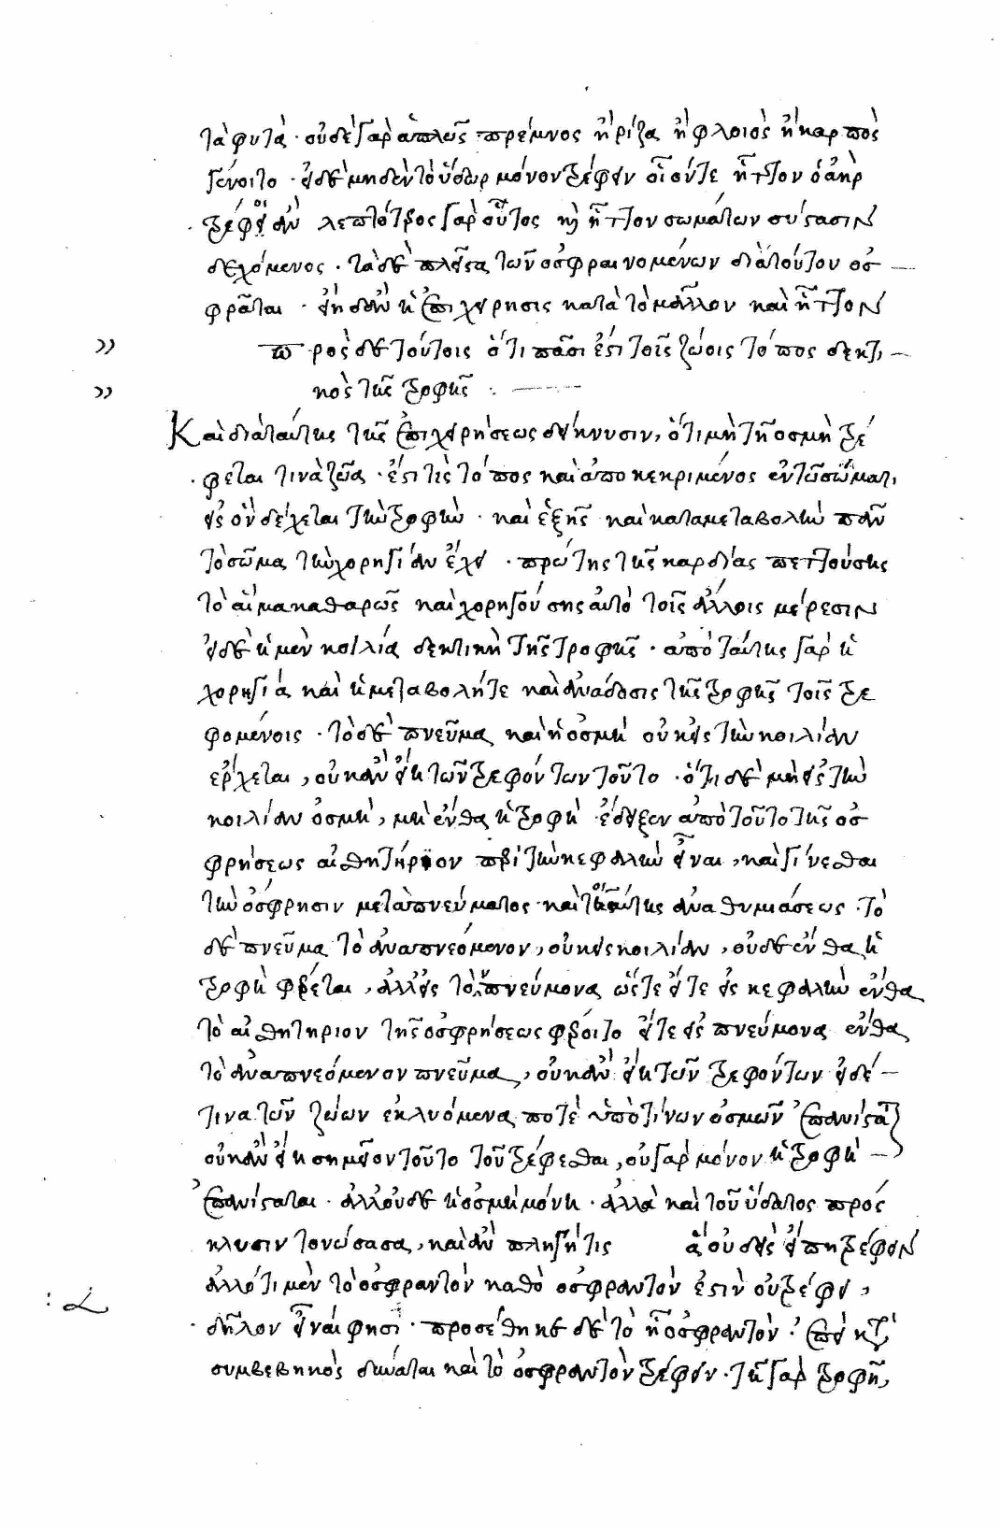 τὰ φυτά · οὐδὲ γὰρ ἁπλῶς πρέμνος ἢ ῥίζα ἢ φλοιὸς ἢ καρπὸς
γένοιτο · εἰ δὲ μηδὲν τὸ ὕδωρ μόνον τρέφειν οἷόν τε ἧττον ὁ ἀὴρ
τρέφοι ἂν λεπτότερος γὰρ οὗτος καὶ ἧττον σωμάτων σύστασιν
δεχόμενος · τὰ δὲ πλεῖστα τῶν ὀσφραινομένων διὰ τούτου ὀσ
φρᾶται · εἴη δ' ἂν ἡ ἐπιχείρησις κατὰ τὸ μᾶλλον καὶ ἧττον
» πρὸς δὲ τούτοις ὅτι πᾶσι ἐστὶ τοῖς ζώοις τόπος δεκτι
» κὸς τῆς τροφῆς :
Καὶ διὰ ταύτης τῆς ἐπιχειρήσεως δείκνυσιν, ὅτι μὴ τῇ ὀσμῇ τρέ
φεται τινὰ ζῶα · ἔστι τὶς τόπος καὶ ἀποκεκριμένος ἐν τῶ σώματι
εἰς ὃν δέχεται τὴν τροφὴν · καὶ ἑξῆς καὶ κατὰ μεταβολὴν πᾶν
τὸ σῶμα τὴν χορηγίαν ἔχει · πρώτης τῆς καρδίας πεττούσης
τὸ αἷμα καθαρῶς καὶ χορηγούσης αὐτὸ τοῖς ἄλλοις μέρεσιν
εἰ δὲ ἡ μὲν κοιλία δεκτικὴ τῆς τροφῆς · ἀπὸ ταύτης γὰρ ἡ
χορηγία καὶ ἡ μεταβολή τε καὶ ἀνάδοσις τῆς τροφῆς τοῖς τρε
φομένοις · τὸ δὲ πνεῦμα καὶ ἡ ὀσμὴ οὐκ εἰς τὴν κοιλίαν
ἔρχεται, οὐκ ἂν εἴη τῶν τρεφόντων τοῦτο · ὅτι δὲ μὴ εἰς τὴν
κοιλίαν ὀσμὴ, μὴ ἔνθα ἡ τροφὴ ἔδειξεν ἀπὸ τοῦ τὸ τῆς ὀσ
φρήσεως αἰσθητήριον περὶ τὴν κεφαλὴν εἶναι, καὶ γίνεσθαι
τὴν ὄσφρησιν μετὰ πνεύματος καὶ τοιαύτης ἀναθυμιάσεως · τὸ
δὲ πνεῦμα τὸ ἀναπνεόμενον, οὐκ εἰς κοιλίαν, οὐδὲ ἔνθα ἡ
τροφὴ φέρεται, ἀλλ' εἰς τὸν πνεύμονα ὥστε εἴτε εἰς κεφαλὴν ἔνθα
τὸ αἰσθητήριον τῆς ὀσφρήσεως φέροιτο εἴτε εἰς πνεύμονα ἔνθα
τὸ ἀναπνεόμενον πνεῦμα, οὐκ ἂν εἴη τῶν τρεφόντων εἰ δέ
τινα τῶν ζώων ἐκλυόμενά ποτε ὑπό τινων ὀσμῶν ἐπανίσταται
οὐκ ἂν εἴη σημεῖον τοῦτο τοῦ τρέφεσθαι, οὐ γὰρ μόνον ἡ τροφὴ
ἐπανίσταται · ἀλλ' οὐδὲ ἡ ὀσμὴ μόνη · ἀλλὰ καὶ τοῦ ὕδατος πρόσ
κλυσιν τονώσασα, καὶ ἂν πληγῇ τις ἃ οὐδεὶς εἴπῃ τρέφειν
ἀλλ' ὅτι μὲν τὸ ὀσφραντὸν καθὸ ὀσφραντὸν ἐστὶν οὐ τρέφει,
δῆλον εἶναι φησι · προσέθηκε δὲ τὸ ᾗ ὀσφραντὸν · ἐπεὶ κατὰ
συμβεβηκὸς δύναται καὶ τὸ ὀσφραντὸν τρέφειν · τῇ γὰρ τροφῇ